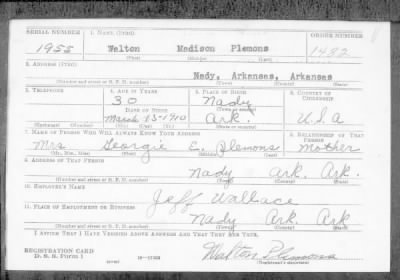 SERIAL NUMBER 1. NAME (Print) ORDER NUMBER
1955 Welton Madison Plemons 1482
(First) (Middle) (Last)
2. ADDRESS (Print)
Nady, Arkansas, Arkansas
(Number and street or R. F. D. number) (Town) (County) (State)
3. TELEPHONE 4. AGE IN YEARS 5. PLACE OF BIRTH 6. COUNTRY OF CITIZENSHIP
30 Nady
DATE OF BIRTH (Town or county)
March 15 1910 Ark. U.S.A
(Exchange) (Number) (Mo.) (Day) (Yr.) (State or country)
7. NAME OF PERSON WHO WILL ALWAYS KNOW YOUR ADDRESS 8. RELATIONSHIP OF THAT PERSON
Mrs Georgie E. Plemons Mother
(Mr., Mrs., Miss) (First) (Middle) (Last)
9. ADDRESS OF THAT PERSON
Nady Ark. Ark.
(Number and street or R. F. D. number) (Town) (County) (State)
10. EMPLOYER'S NAME
Jeff Wallace
11. PLACE OF EMPLOYMENT OR BUSINESS
Nady Ark. Ark
(Number and street or R. F. D. number) (Town) (County) (State)
I AFFIRM THAT I HAVE VERIFIED ABOVE ANSWERS AND THAT THEY ARE TRUE.
REGISTRATION CARD
D. S. S. Form 1 Welton Plemons
(Registrant's signature)